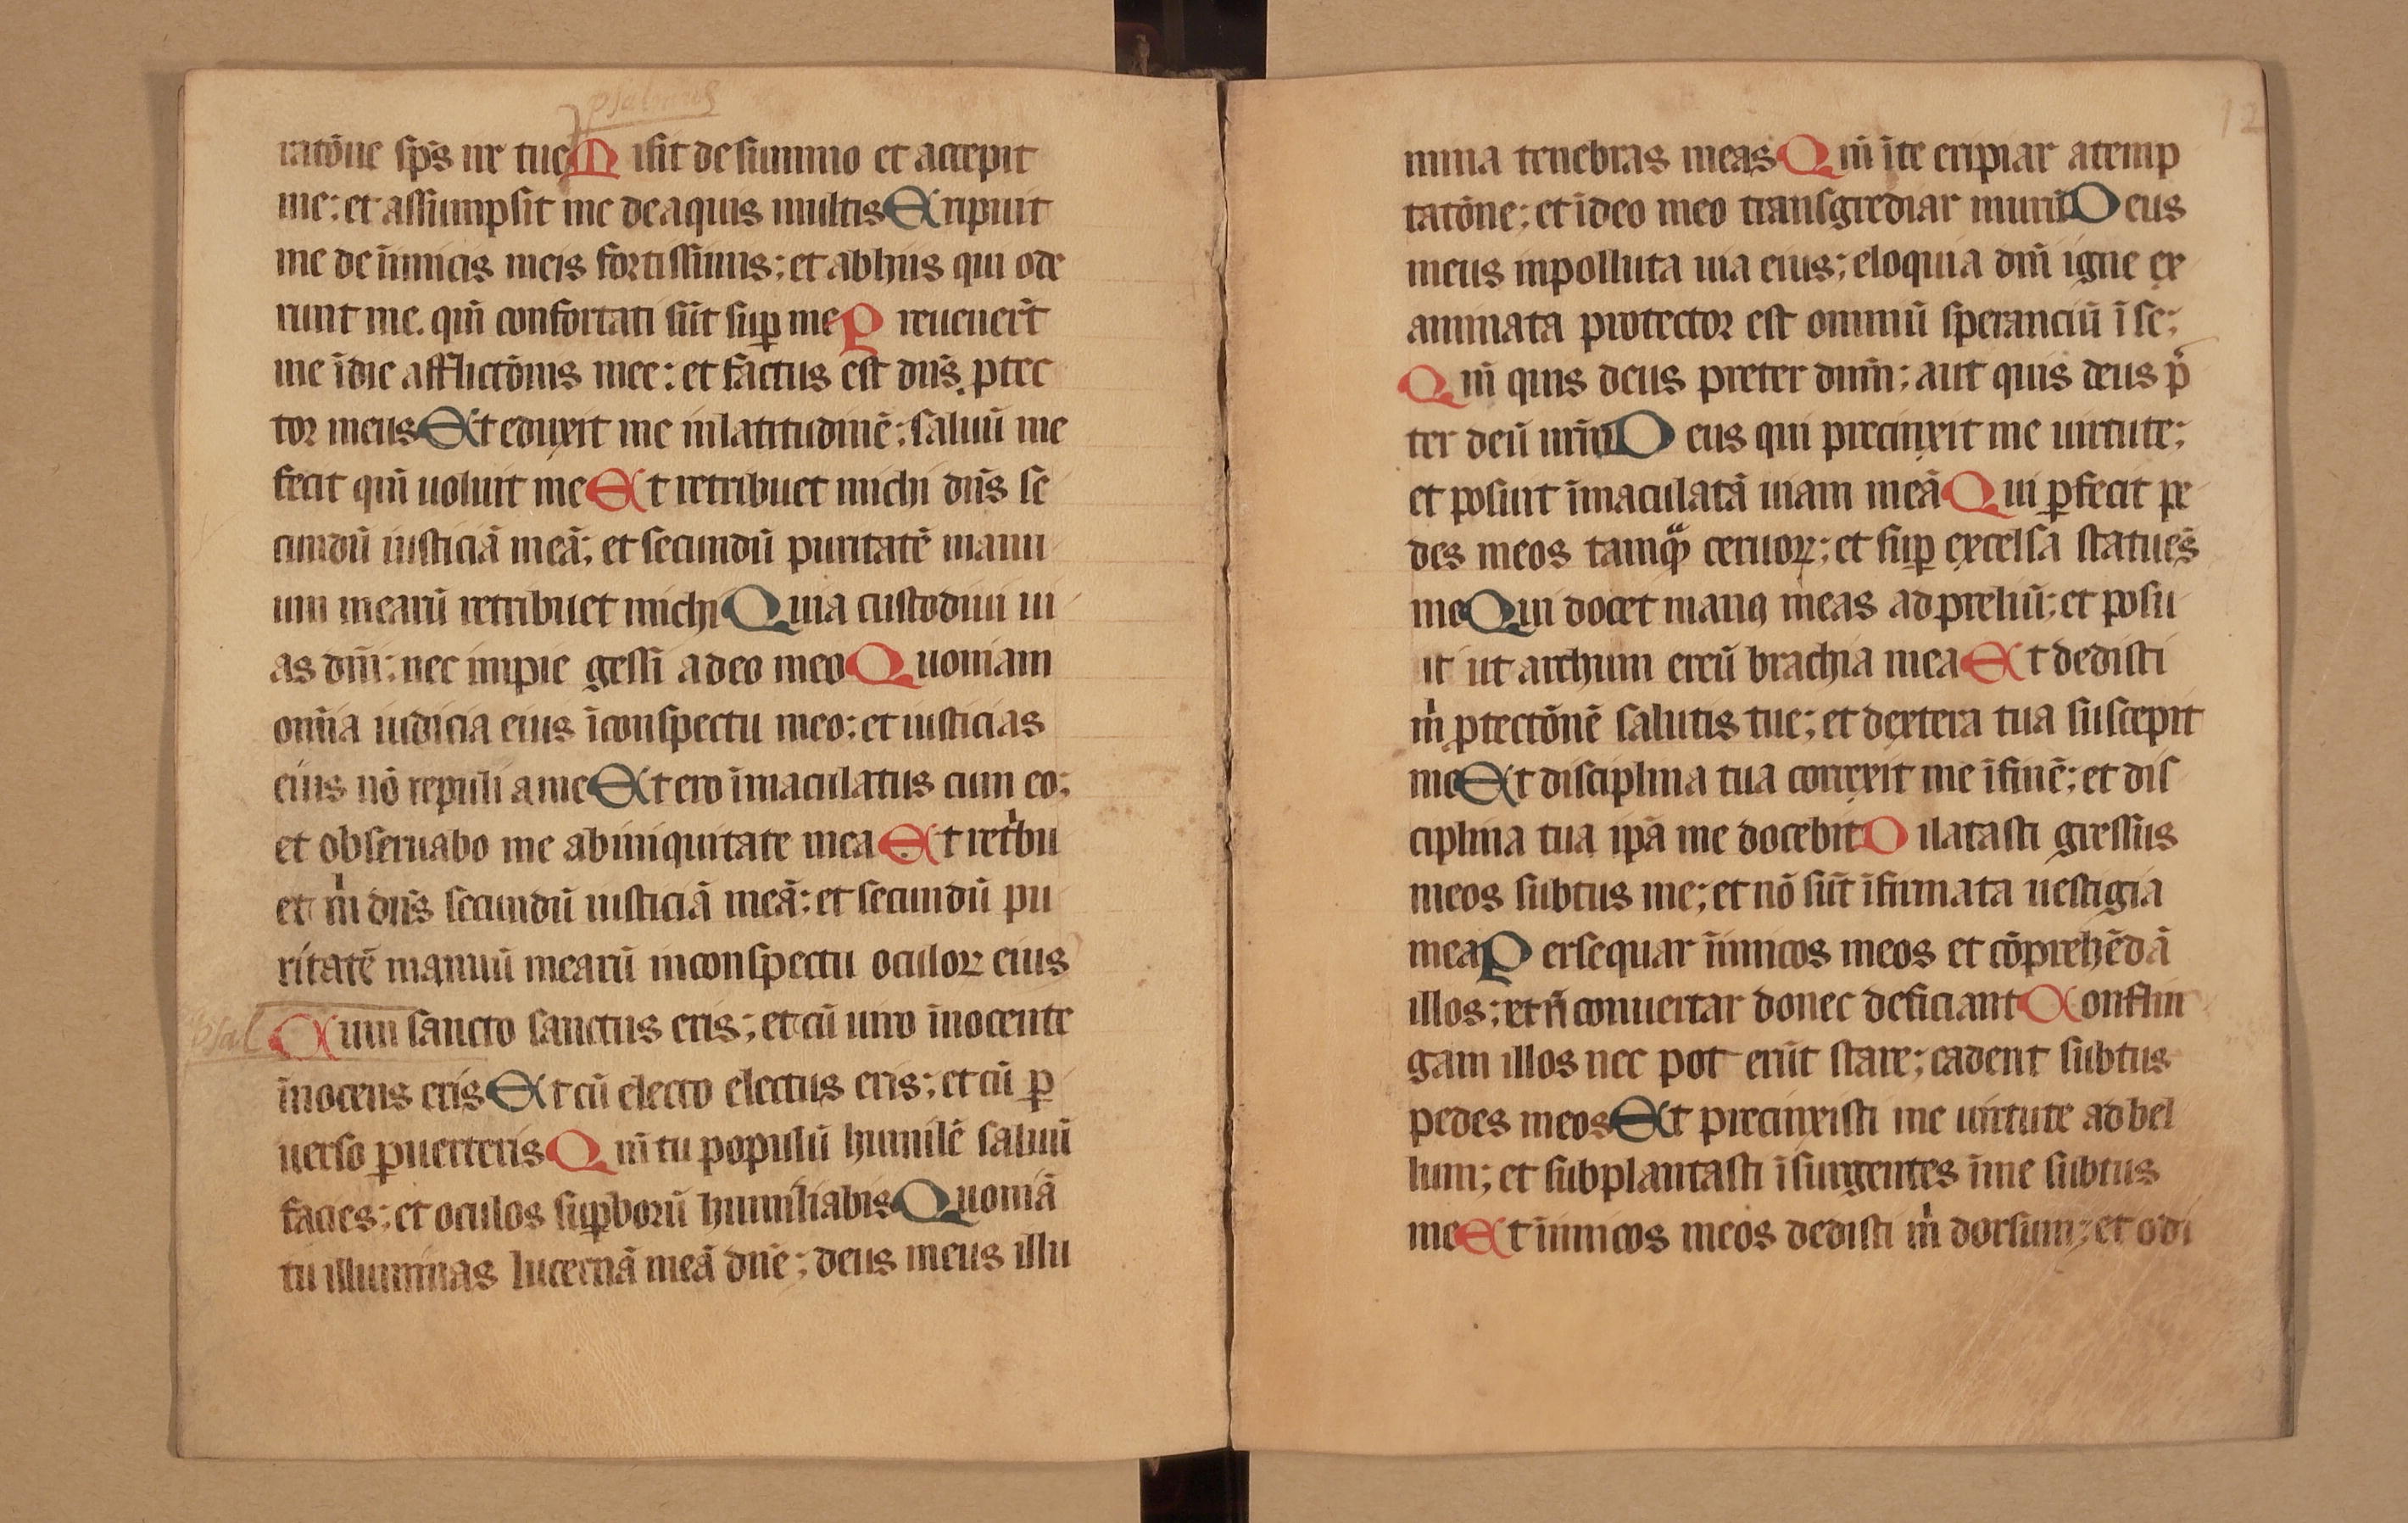 psalmus
ratōne sp̄s ire tue Misit de summo et accepit
me: et assumpsit me de aquis multis Eripuit
me de īimicis meis fortissimis: et abhiis qui ode
runt me. qm̄ confortati sūt sup̱ me Preuener̄t
me īdie afflictōnis mee: et factus est dn̄s ꝓtec
tor meus Et eduxit me inlatitudinē: saluū me
fecit qm̄ uoluit me Et retribuet michi dn̄s se
cundū iusticiā meā: et secundū puritatē manu
um mearū retribuet michi Quia custodiui ui
as dn̄i: nec impie gessi adeo meo Quoniam
om̄ia iudicia eius īconspectu meo: et iusticias
eius nō repuli ame Et ero īmaculatus cum eo:
et obseruabo me abiniquitate mea Et retⁱbu
et mⁱ dn̄s secundū iusticiā meā: et secundū pu
ritatē manuū mearū inconspectu oculoꝝ eius
psal Cum sancto sanctus eris: et cū uiro īnocente
īnocens eris Et cū electo electus eris: et cū ꝑ
uerso ꝑuerteris Qm̄ tu populū humilē saluū
facies: et oculos suꝑborū humiliabis Quoniā
tu illuminas lucernā meā dn̄e: deus meus illu
12
mina tenebras meas Qm̄ īte eripiar atemp
tatōne: et īdeo meo transgrediar murū Deus
meus inpolluta uia eius: eloquia dn̄i igne ex
aminata protector est omniū speranciū ī se:
Qm̄ quis deus preter dnm̄: aut quis deus p̄
ter deū nr̄m Deus qui precinxit me uirtute:
et posuit īmaculatā uiam meā Qui ꝑfecit pe
des meos tamqᵃ̄ ceruoꝝ: et suꝑ excelsa statuēs
me Qui docet manꝯ meas ad preliū: et posu
it ut archum ereū brachia mea Et dedisti
mⁱ ꝓtectōnē salutis tue: et dextera tua suscepit
me Et disciplina tua correxit me īfinē: et dis
ciplina tua ip̄a me docebit Dilatasti gressus
meos subtus me: et nō sūt īfirmata uestigia
mea Persequar īimicos meos et cōprehēdā
illos: et n̄ conuertar donec deficiant Confrin
gam illos nec pot erūt stare: cadent subtus
pedes meos Et precinxisti me uirtute ad bel
lum: et subplantasti īsurgentes īme subtus
me Et īimicos meos dedisti mⁱ dorsum: et odi